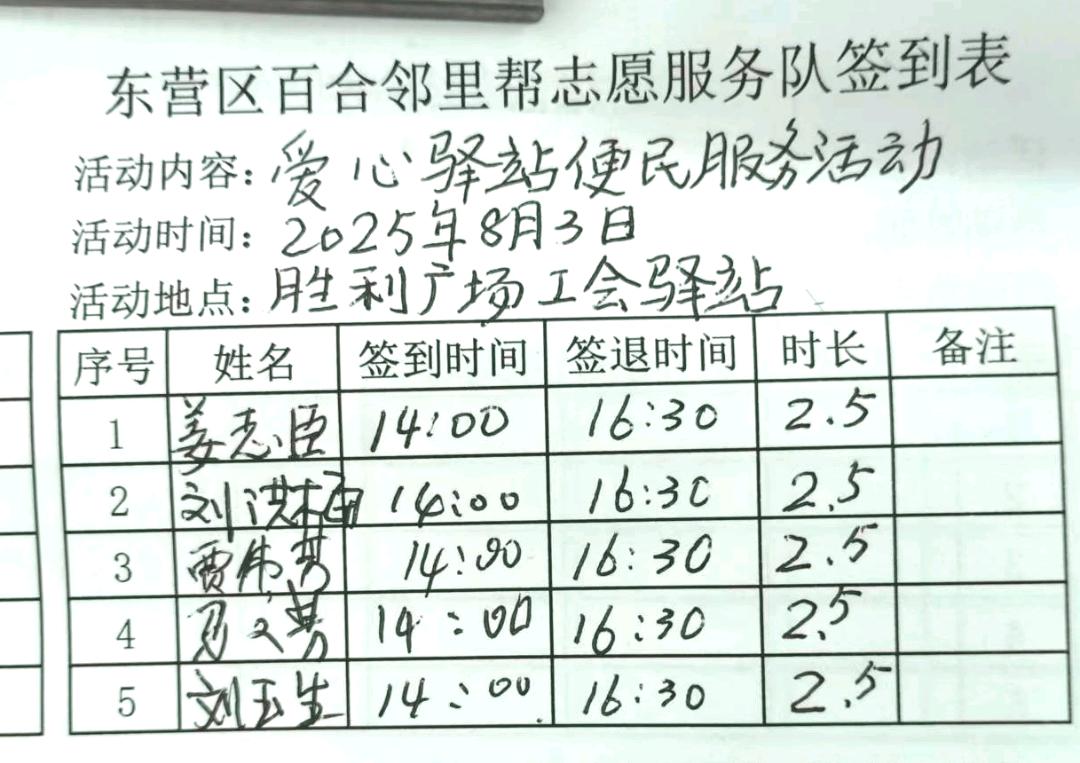 东营区百合邻里帮志愿服务队签到表
活动内容:爱心驿站便民服务活动
活动时间:2025年8月3日
活动地点:胜利广场工会驿站
序号 姓名 签到时间 签退时间 时长 备注
1 姜志臣 14:00 16:30 2.5
2 刘洪柏 14:00 16:30 2.5
3 14:00 16:30 2.5
4 14:00 16:30 2.5
5 刘玉生 14:00 16:30 2.5